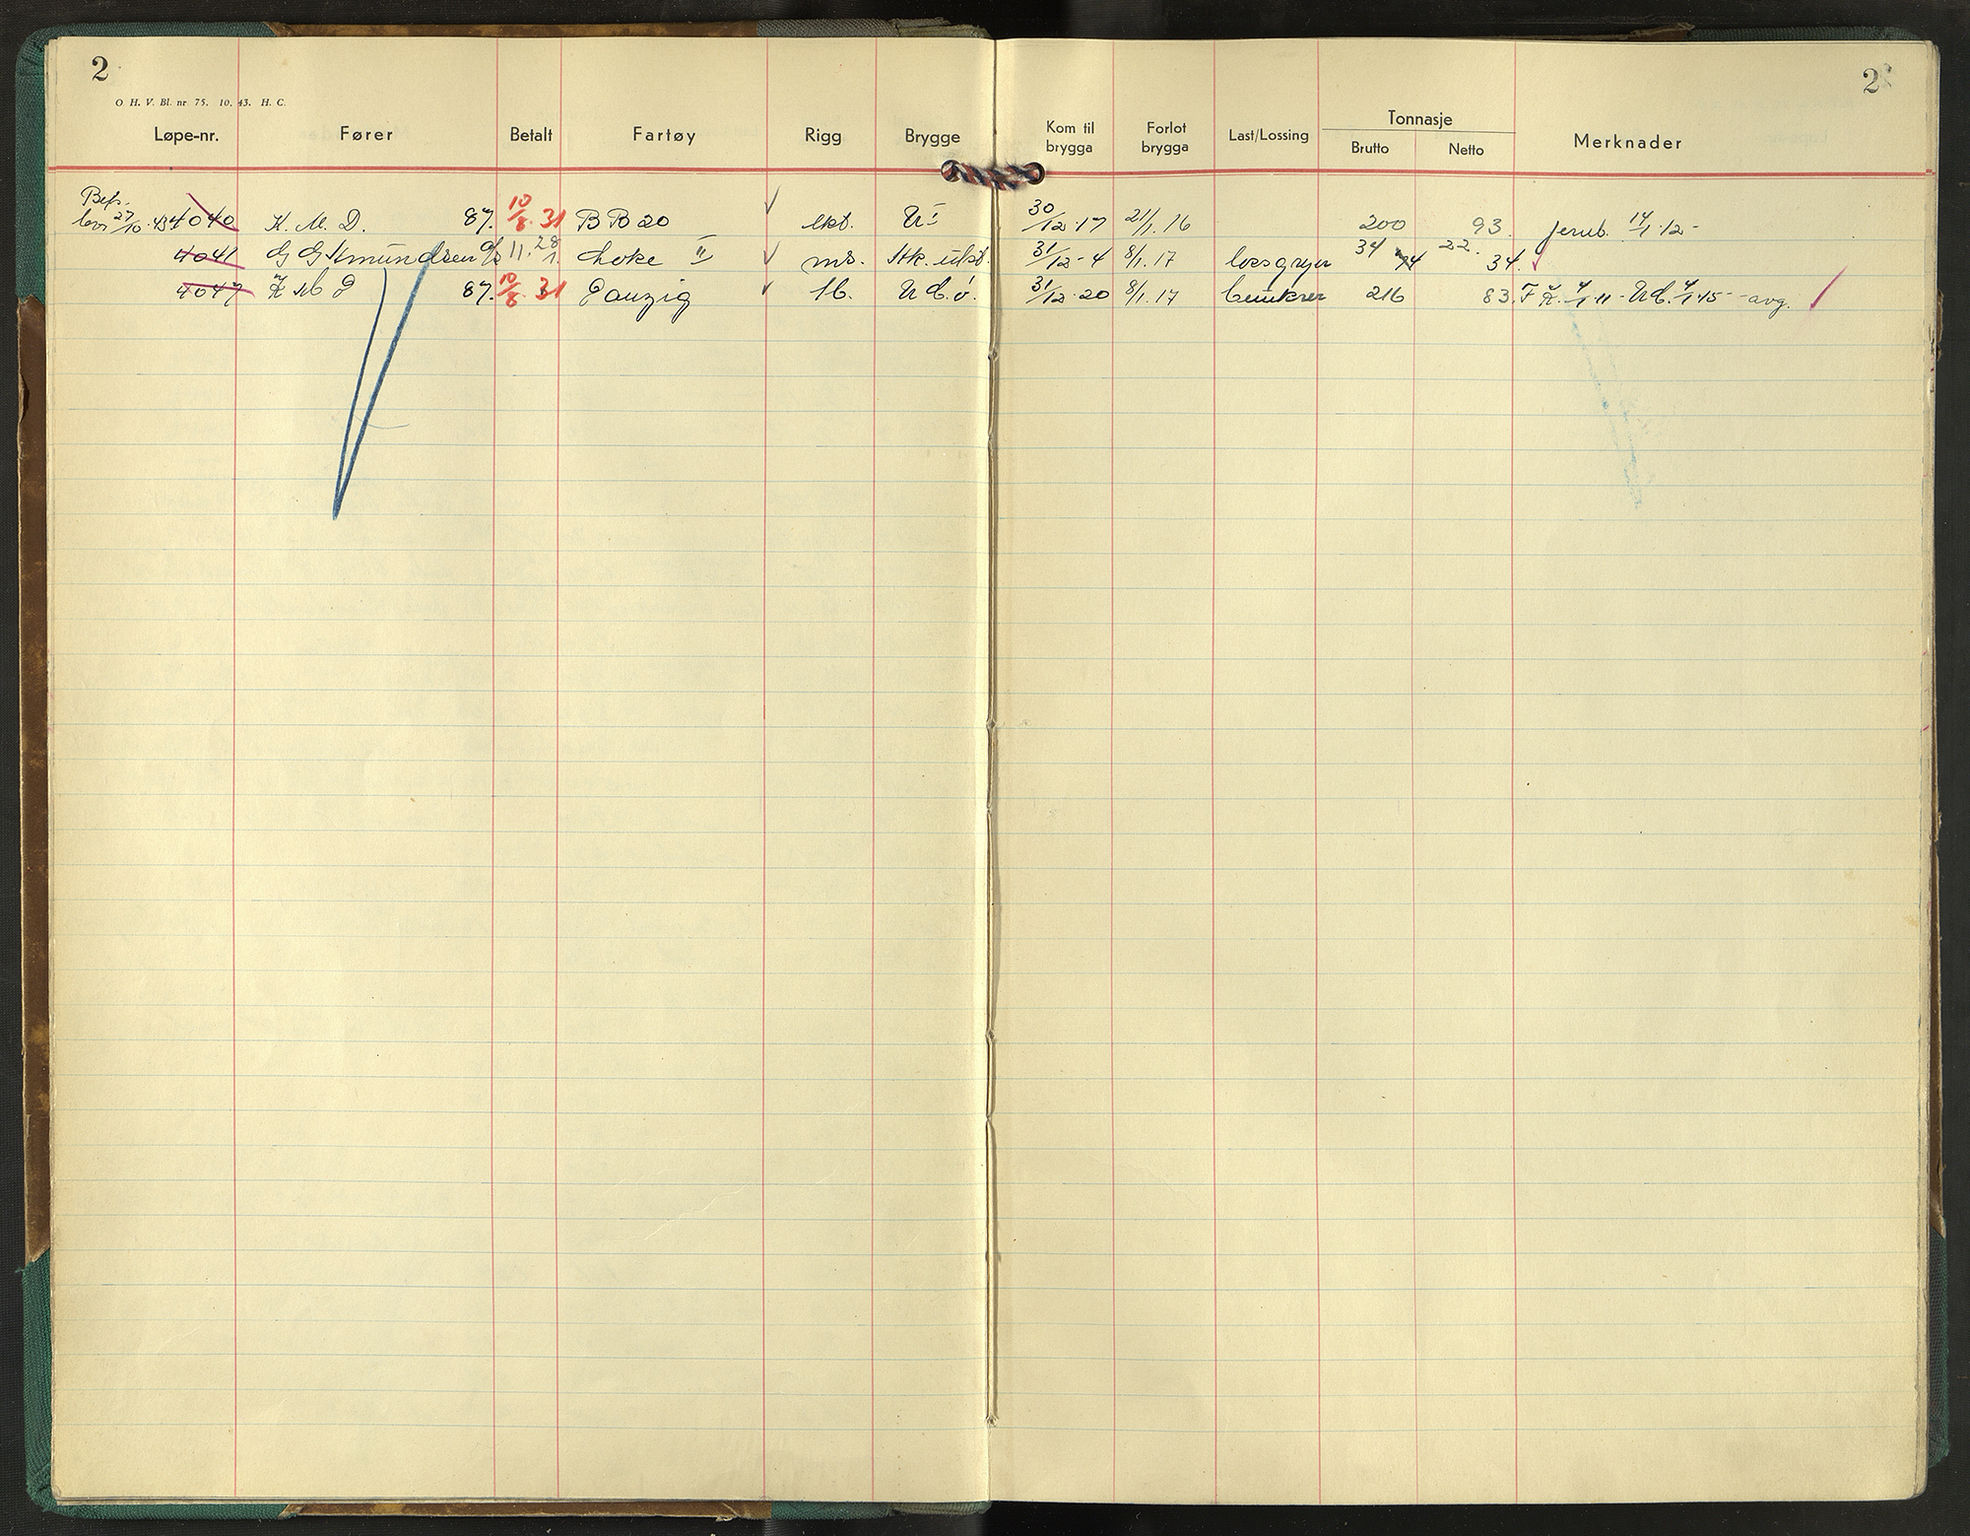 2
2
O H. V. Bl. nr 75. 10. 43. H. C.
Løpe-nr. Fører Betalt Fartøy Rigg Brygge Kom til brygga Forlot brygga Last/Lossing Tonnasje Brutto Netto Merknader
27/10 43 4040 K. M. D. 87. 10/8 31 BB 20 lkt. 30/12 17 21/1. 16 200 93. 14/1 12 -
4041 G Gstmundsen 11. 28/1 Loke II ms. Stk. utst. 31/12 - 4 8/1. 17 34 22 34.
4047 K M D 87. 10/8 31 Danzig lb. 31/12 20 8/1. 17 bunkrer 216 83 avg.